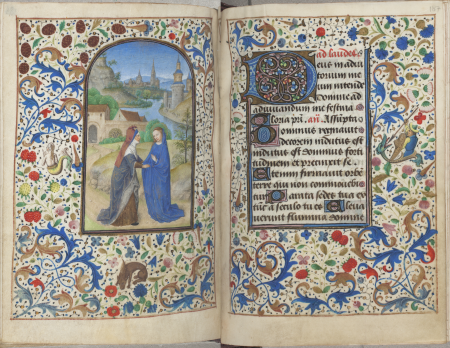 ad laudes
Deus in adiu
torium me
um intende
Domine ad
adiuuandum me festina
Gloria pri. añ. Assupta
Dominus regnauit
decorem indutus est
indutus est dominus forti
tudinem et precinxit se
Etenim firmauit orbe
terre qui non commouebi
tur Parata sedes tua ex
a seculo tu es Eleua
uerunt flumina domine